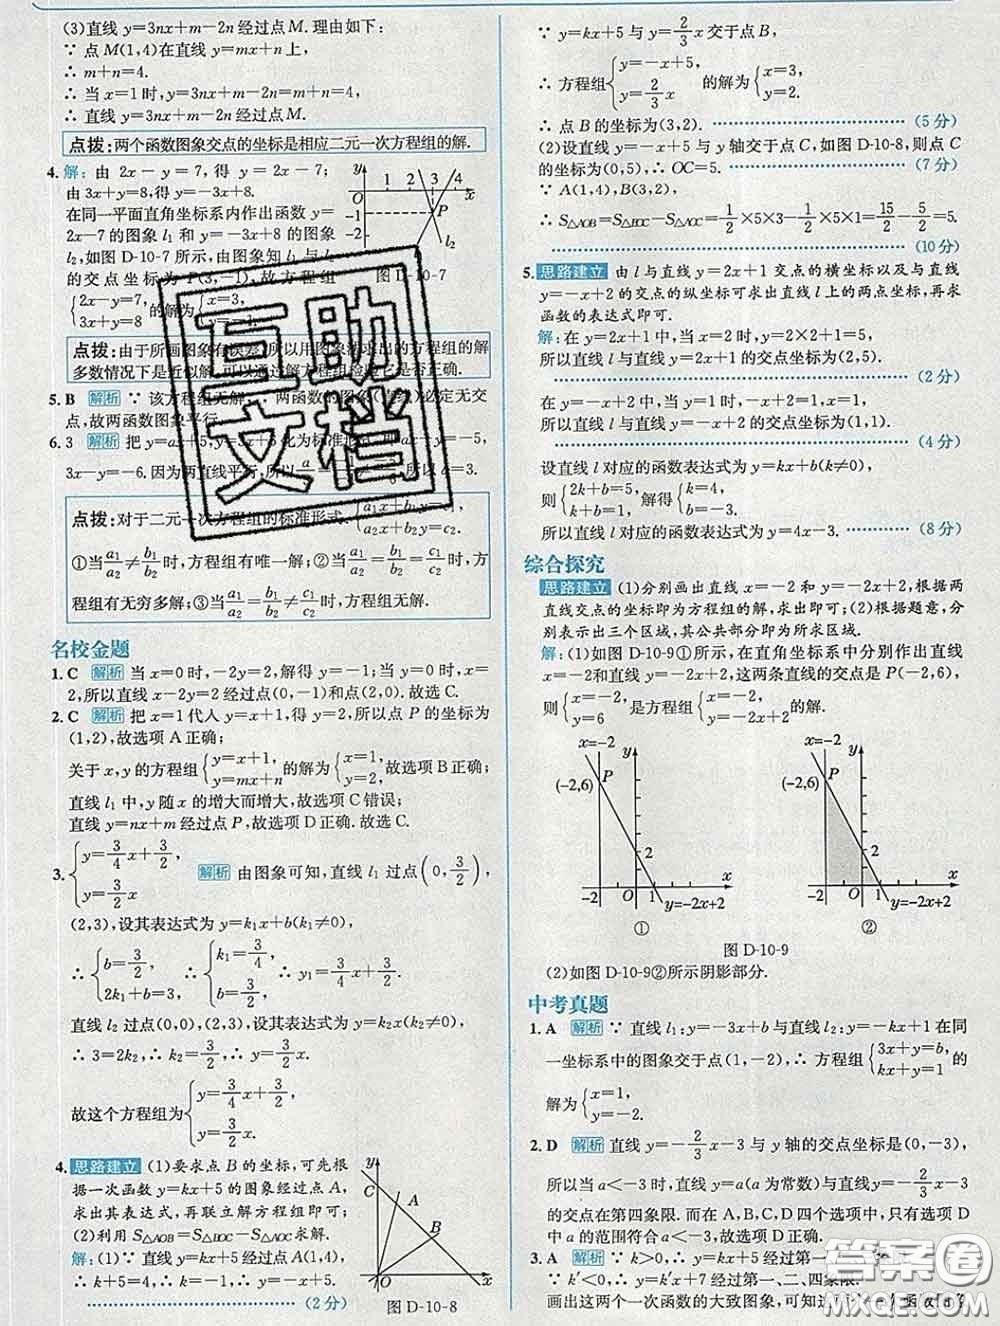 (3)直线 y=3nx+m-2n 经过点 M. 理由如下:
∵ 点 M(1,4)在直线 y=mx+n 上,
∴ m+n=4.
∴ 当 x=1 时, y=3nx+m-2n=m+n=4,
∴ 直线 y=3nx+m-2n 经过点 M.
点拨:两个函数图象交点的坐标是相应二元一次方程组的解.
4. 解:由 2x-y=7, 得 y=2x-7;
由 3x+y=8,得 y=-3x+8.
在同一平面直角坐标系内作出函数 y=
2x-7 的图象 l₁ 和 y=-3x+8 的图象
l₂,如图 D-10-7 所示,由图象知 l₁ 与 l₂
的交点坐标为 P(3,-1).故方程组
{2x-y=7, 3x+y=8 的解为 {x=3,
y x O 1 2 3 4 -1 -2 P l₂
图 D-10-7
点拨:由于所画图象有误差,所以用图象法求出的方程组的解
多数情况下是近似解,可以通过解方程组检验它是否正确.
5. B 解析 ∵ 该方程组无解,∴ 两函数的图象(直线)必定无交
点,故两函数图象平行.
6. 3 解析 把 y=ax+5, y=3x+6 化为标准形式,即 ax-y=-5,
3x-y=-6. 因为两直线平行,所以
点拨:对于二元一次方程组的标准形式 {a₁x+b₁y=c₁, a₂x+b₂y=c₂.
①当 a₁/a₂≠b₁/b₂ 时,方程组有唯一解;②当 a₁/a₂=b₁/b₂=c₁/c₂ 时,方
程组有无穷多解;③当 a₁/a₂=b₁/b₂≠c₁/c₂ 时,方程组无解.
名校金题
1. C 解析 当 x=0 时,-2y=2,解得 y=-1;当 y=0 时,x=
2,所以直线 x-2y=2 经过点(0,-1)和点(2,0). 故选 C.
2. C 解析 把 x=1 代入 y=x+1,得 y=2,所以点 P 的坐标为
(1,2),故选项 A 正确;
关于 x,y 的方程组 {y=x+1, y=mx+n 的解为 {x=1, y=2, 故选项 B 正确;
直线 l₁ 中,y 随 x 的增大而增大,故选项 C 错误;
直线 y=nx+m 经过点 P,故选项 D 正确. 故选 C.
3. {y=3/4 x+3/2, y=3/2 x 解析 由图象可知,直线 l₁ 过点 (0,3/2),
(2,3),设其表达式为 y=k₁x+b(k₁≠0),
∴ {b=3/2, 2k₁+b=3, ∴ {k₁=3/4, b=3/2, ∴ y₁=3/4 x+3/2.
直线 l₂ 过点(0,0),(2,3),设其表达式为 y=k₂x(k₂≠0),
∴ 3=2k₂,∴ k₂=3/2,∴ y₂=3/2 x.
故这个方程组为 {y=3/4 x+3/2, y=3/2 x.
4. 思路建立 (1)要求点 B 的坐标,可先根
据一次函数 y=kx+5 的图象经过点 A,
求出其表达式,再联立解方程组即可;
(2)利用 S△AOB=S△BOC-S△AOC 求解.
解:(1)∵ 直线 y=kx+5 经过点 A(1,4),
∴ k+5=4,∴ k=-1,∴ y=-x+5.
(2 分)
y C A B O x
图 D-10-8
∵ y=kx+5 与 y=2/3 x 交于点 B,
∴ 方程组 {y=-x+5, y=2/3 x 的解为 {x=3, y=2.
∴ 点 B 的坐标为(3,2). (5 分)
(2)设直线 y=-x+5 与 y 轴交于点 C,如图 D-10-8,则点 C
的坐标为(0,5),∴ OC=5. (7 分)
∵ A(1,4),B(3,2),
∴ S△AOB=S△BOC-S△AOC=1/2×5×3-1/2×5×1=15/2-5/2=5.
(10 分)
5. 思路建立 由 l 与直线 y=2x+1 交点的横坐标以及与直线
y=-x+2 的交点的纵坐标可求出直线 l 上的两点坐标,再求
函数的表达式即可.
解:在 y=2x+1 中,当 x=2 时,y=2×2+1=5,
所以直线 l 与直线 y=2x+1 的交点坐标为(2,5).
(2 分)
在 y=-x+2 中,当 y=1 时,-x+2=1,x=1,
所以直线 l 与直线 y=-x+2 的交点坐标为(1,1).
(4 分)
设直线 l 对应的函数表达式为 y=kx+b(k≠0),
则 {2k+b=5, k+b=1, 解得 {k=4, b=-3.
所以直线 l 对应的函数表达式为 y=4x-3. (8 分)
综合探究
思路建立 (1)分别画出直线 x=-2 和 y=-2x+2,根据两
直线交点的坐标即为方程组的解,求出即可;(2)根据题意,分
别表示出三个区域,其公共部分即为所求区域.
解:(1)如图 D-10-9①所示,在直角坐标系中分别作出直线
x=-2 和直线 y=-2x+2,这两条直线的交点是 P(-2,6),
则 {x=-2, y=6 是方程组 {x=-2, y=-2x+2 的解.
x=-2 y (-2,6) P 2 -2 O 1 x y=-2x+2 ①
x=-2 y (-2,6) P 2 -2 O 1 x y=-2x+2 ②
图 D-10-9
(2)如图 D-10-9②所示阴影部分.
中考真题
1. A 解析 ∵ 直线 l₁:y=-3x+b 与直线 l₂:y=-kx+1 在同
一坐标系中的图象交于点(1,-2),∴ 方程组 {3x+y=b, kx+y=1 的
解为 {x=1, y=-2.
2. D 解析 直线 y=-2/3 x-3 与 y 轴的交点坐标是(0,-3),
所以当 a<-3 时,直线 y=a(a 为常数)与直线 y=-2/3 x-3
的交点在第四象限. 而在 A、B、C、D 四个选项中,只有选项 D
中 a 的范围符合 a<-3,故选 D.
3. A 解析 ∵ k>0,∴ y=kx+5 经过第一
∵ k′<0,∴ y=k′x+7 经过第一、二、四象限.
画出这两个一次函数的大致图象,可知这
互助文档
答案圈
MXQE.COM